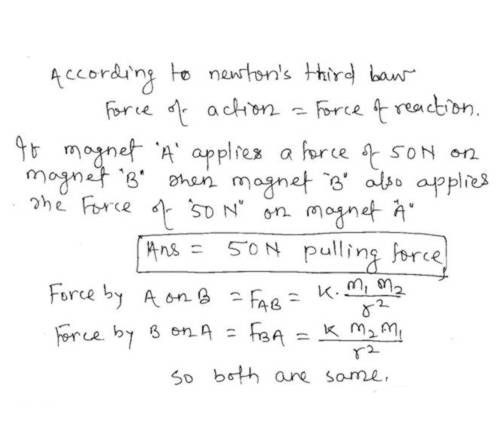 According to newton's third law
Force of action = Force of reaction.
If magnet 'A' applies a force of 50N on
magnet "B" then magnet "B" also applies
the Force of "50 N" on magnet "A"
Ans = 50N pulling force
Force by A on B = F_AB = K. m₁ m₂ / r²
Force by B on A = F_BA = K m₂ m₁ / r²
so both are same.